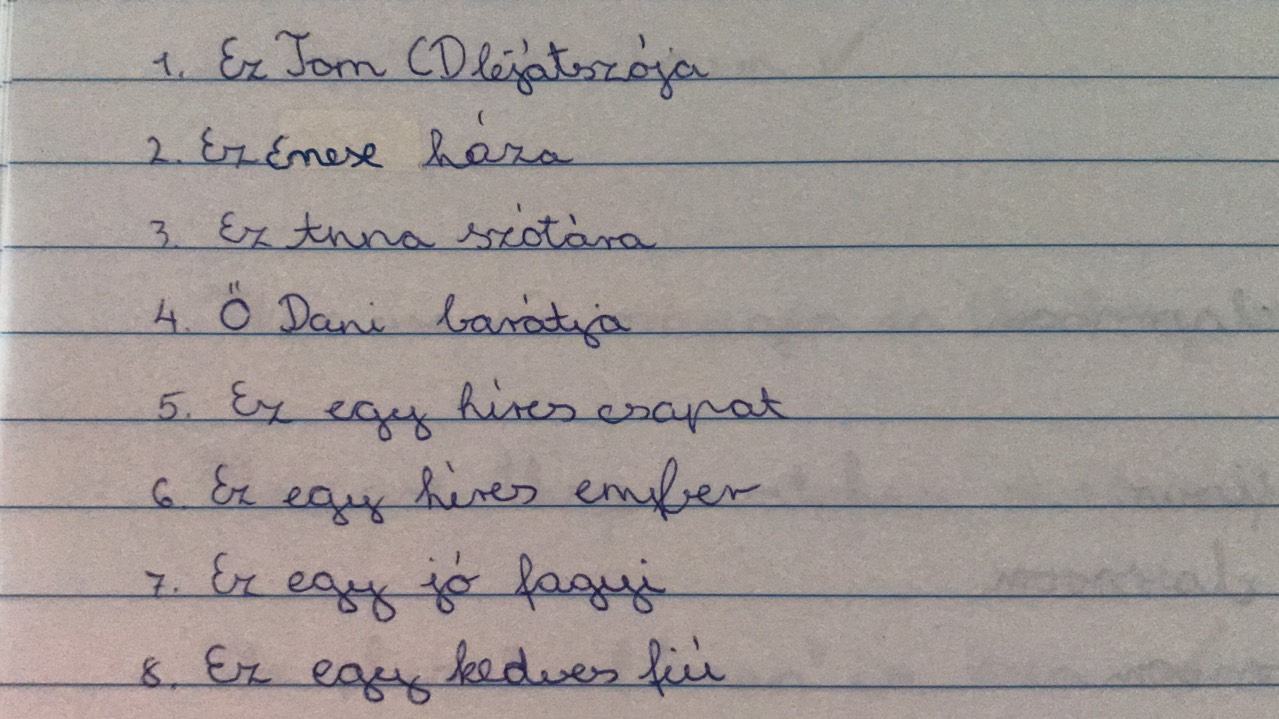 1. Ez Tom CD lejátszója
2. Ez Emese háza
3. Ez Anna szótára
4. Ő Dani barátja
5. Ez egy híres csapat
6. Ez egy híres ember
7. Ez egy jó fagyi
8. Ez egy kedves fiú